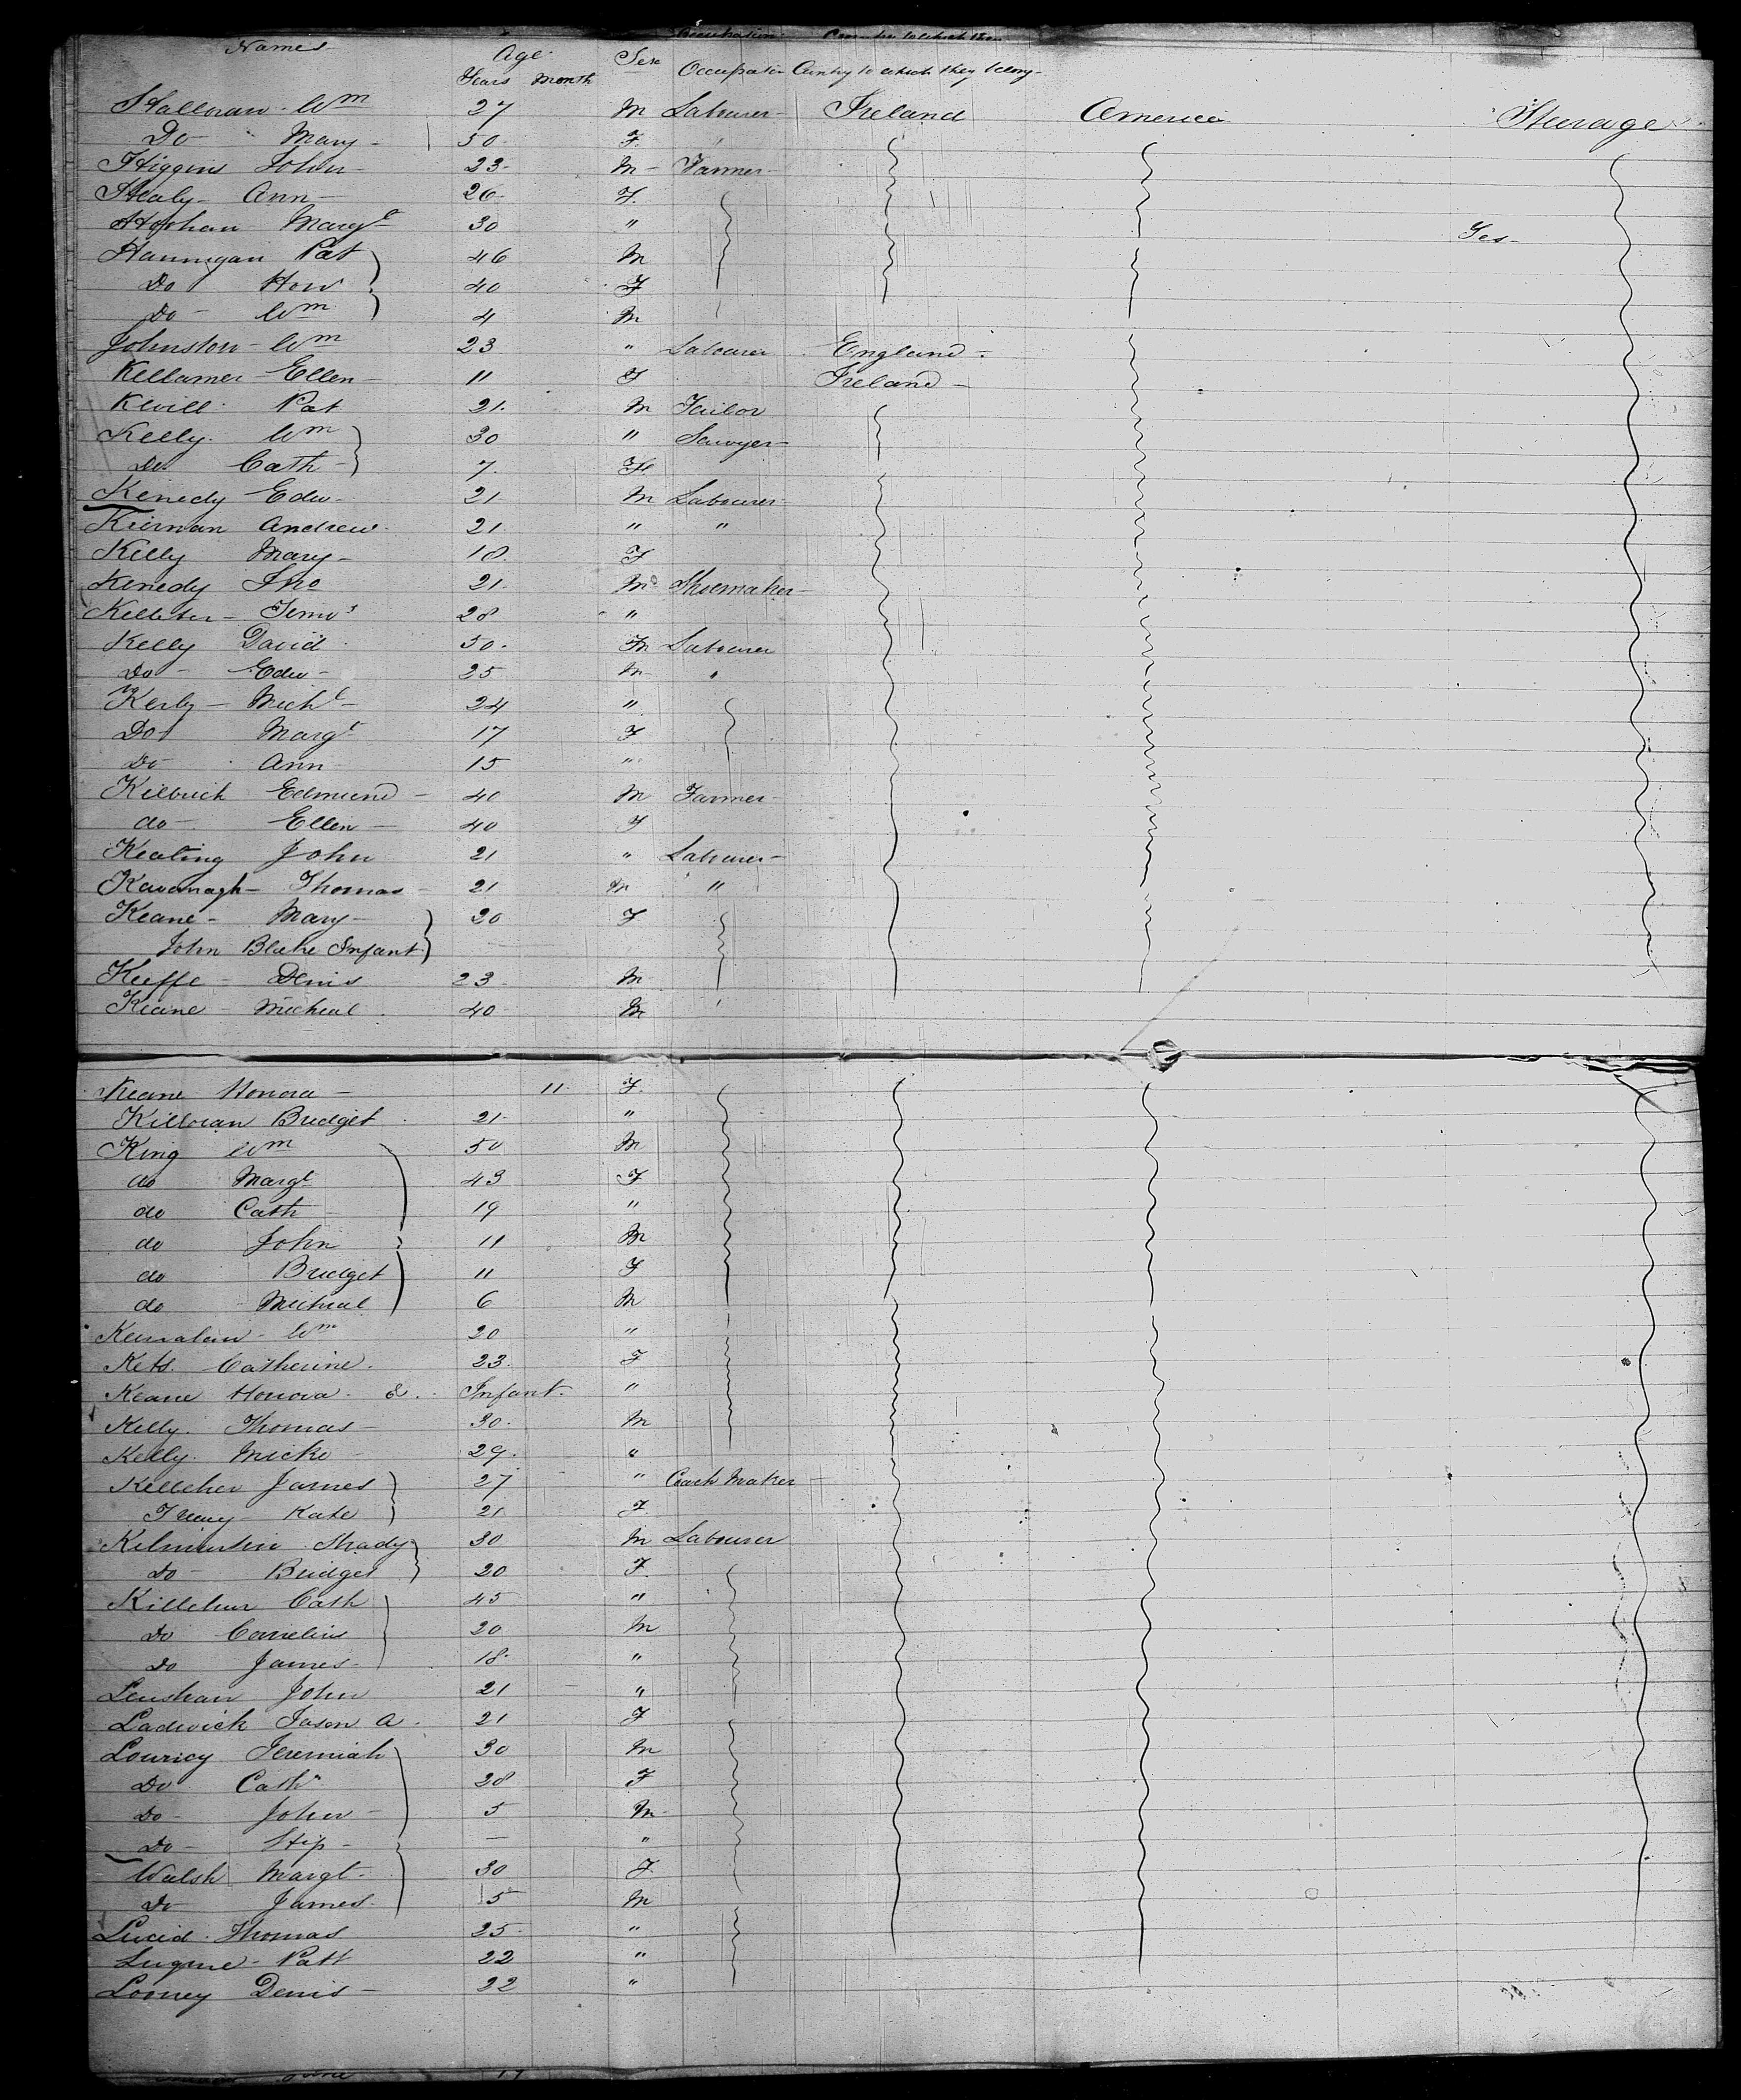 Names Age Sex Occupation Country to which they belong
Years Month
Halloran Wm 27 M Labourer Ireland America Steerage
Do " Mary 50 F
Higgins John 23 M Farmer
Healy Ann 26 F
Margt 30 " Yes
Hannigan Pat 46 M
Do Hon 40 F
Do Wm 4 M
Johnston Wm 23 " Labourer England
Ellen 11 F Ireland
Kevill Pat 21 M Tailor
Kelly Wm 30 " Sawyer
Do Cath 7 Fe
Kenedy Edw 21 M Labourer
Kiernan Andrew 21 " "
Kelly Mary 18 F
Kenedy Jno 21 M Shoemaker
28 "
Kelly David 50 M Labourer
Do Edw 25 M "
Kerby Michl 24 "
Do Margt 17 F
Do Ann 15 "
Edmund 40 M Farmer
do Ellen 40 F
Keating John 21 " Labourer
Kavanagh Thomas 21 M "
Keane Mary 20 F
John Blake Infant
Keeffe Denis 23 M
Keane Micheal 40 M
Keane Honora 11 F
Killoran Bridget 21 "
King Wm 50 M
do Margt 43 F
do Cath 19 "
do John 11 M
do Bridget 11 F
do Micheal 6 M
Wm 20 "
Catherine 23 F
Keane Honora & Infant "
Kelly Thomas 30 M
Kelly Micke 29 "
Kelleher James 27 " Coach Maker
Kate 21 F
Thady 30 M Labourer
Do Bridget 20 F
Cath 45 "
Do Cornelius 20 M
Do James 18 "
Lenshan John 21 "
Ladwick Jason A 21 F
Jeremiah 30 M
Do Cath 28 F
Do John 5 M
Do Step — "
Walsh Margt 30 F
Do James 5 M
Lucid Thomas 25 "
Patt 22 "
Looney Denis 22 "